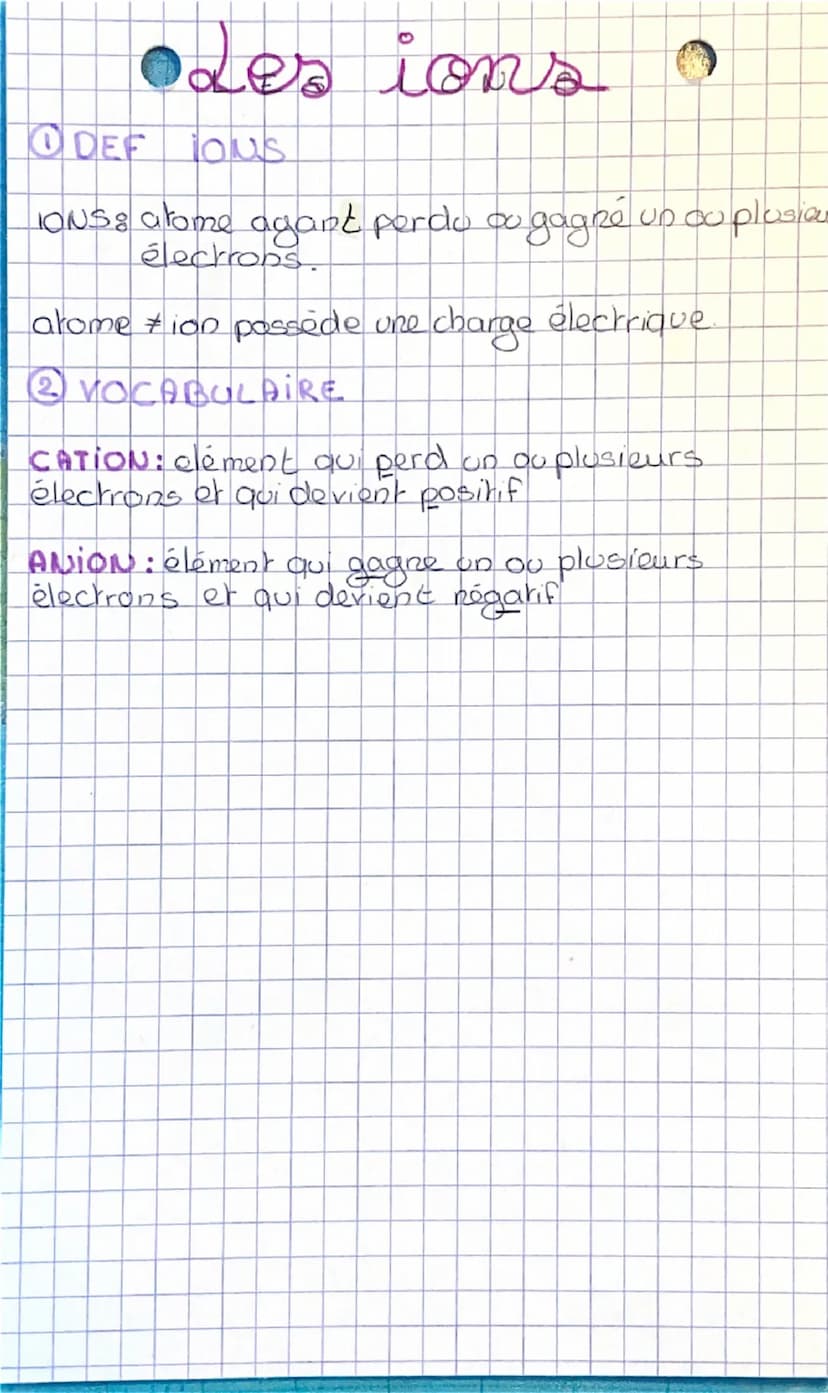 Les ions
① DEF IONS
IONS: atome ayant perdu ou gagné un ou plusieu
électrons.
atome ≠ ion possède une charge électrique.
② VOCABULAIRE
CATION: élément qui perd un ou plusieurs
électrons et qui devient positif
ANION: élément qui gagne un ou plusieurs
électrons et qui devient négatif